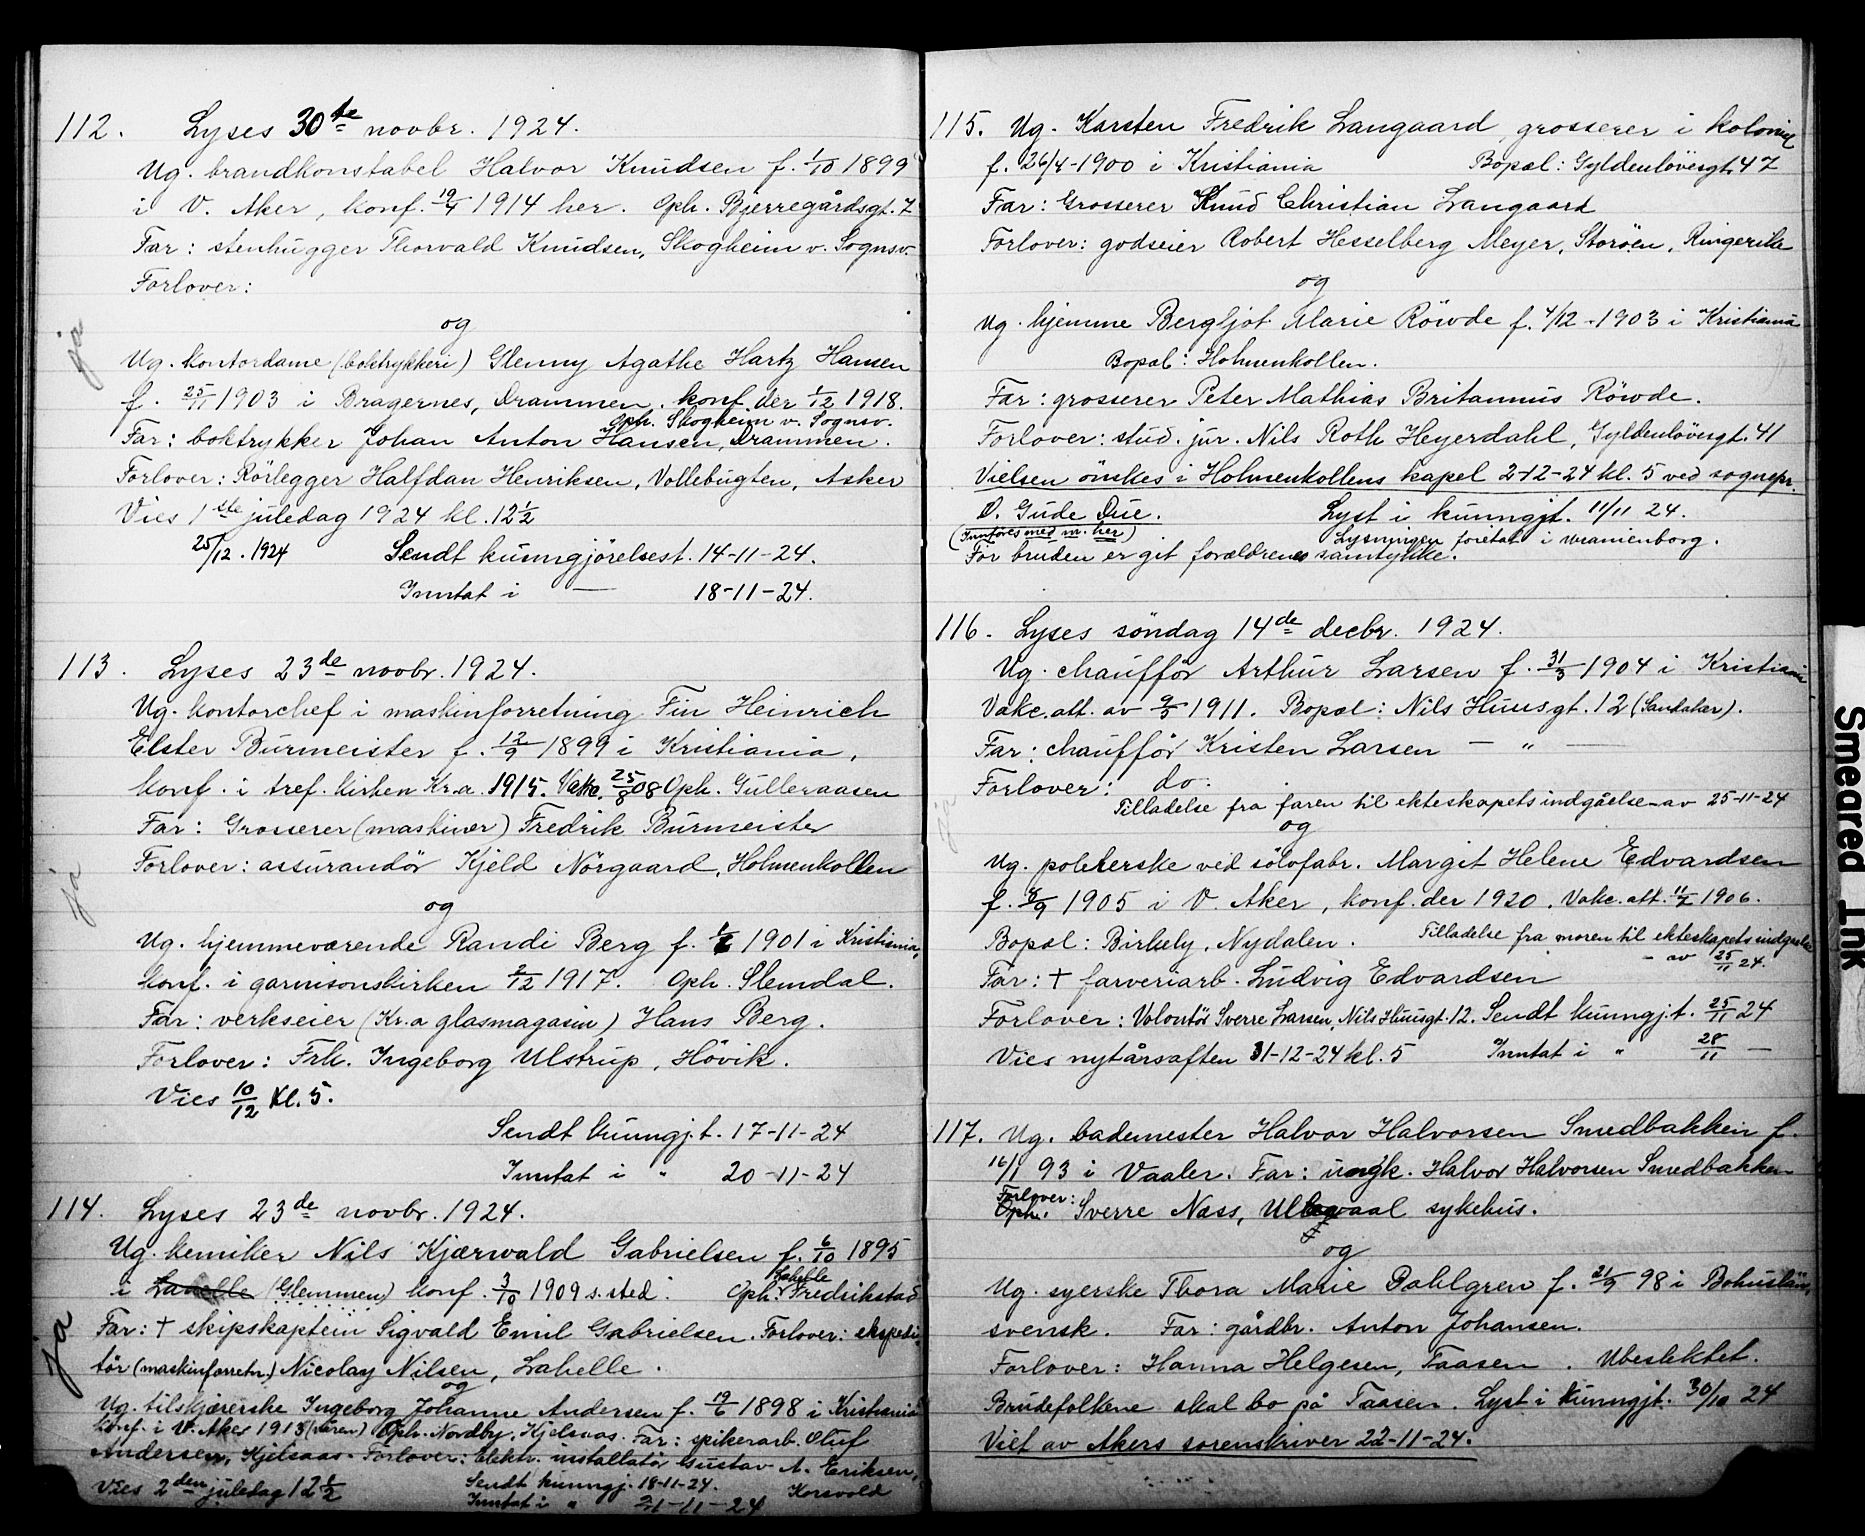 112. Lyses 30te novbr. 1924.
Ug. brandkonstabel Halvor Knudsen f. 1/10 1899
i V. Aker, konf. 19/4 1914 her. Oph. Bjerregårdsgt. 7
Far: stenhugger Thorvald Knudsen, Skogheim v. Sognsv.
Forlover:
og
ja
Ug. kontordame (boktrykkeri) Glenny Agathe Hartz Hansen
f. 25/11 1903 i Bragernes, Drammen. konf. der 1/12 1918.
Oph. Skogheim v. Sognsv.
Far: boktrykker Johan Anton Hansen, Drammen.
Forlover: Rörlegger Halfdan Henriksen, Vollebugten, Asker
Vies 1ste juledag 1924 kl. 12 1/2
25/12. 1924 Sendt kunngjörelsest. 14-11-24.
Inntat i — 18-11-24.
113. Lyses 23de novbr. 1924.
Ug. kontorchef i maskinforretning Fin Heinrich
Elster Burmeister f. 12/9 1899 i Kristiania,
konf. i tref. kirken Kr.a. 1915. Vakc. 25/8 08 Oph. Gulleraasen
Far: Grosserer (maskiner) Fredrik Burmeister
Forlover: assurandör Kjeld Nörgaard, Holmenkollen
ja
og
Ug. hjemmeværende Randi Berg f. 1901 i Kristiania,
konf. i garnisonskirken 2/12 1917. Oph. Slemdal.
Far: verkseier (Kr.a glasmagasin) Hans Berg.
Forlover: Frk. Ingeborg Ulstrup, Hövik.
Vies 10/12 kl. 5.
Sendt kunngj.t. 17-11-24
Inntat i " 20-11-24
114. Lyses 23de novbr. 1924.
Ug. kemiker Nils Kjærwald Gabrielsen f. 6/10 1895
i Lahelle (Glemmen) konf. 3/10 1909 s. sted. Oph. Lahelle Fredrikstad
Far: + skipskaptein Sigvald Emil Gabrielsen. Forlover: ekspedi-
ja
tör (maskinforretn.) Nicolay Nilsen, Lahelle.
og
Ug. tilskjærerske Ingeborg Johanne Andersen f. 19/6 1898 i Kristiania
konf. i V. Aker 1913 (våren) Oph. Nordby, Kjelsaas. Far: spikerarb. Oluf
Andersen, Kjelsaas. Forlover: Elektr. installatör Gustav A. Eriksen,
Korsvold
Vies 2den juledag 12 1/2 Sendt kunngj. 18-11-24.
Inntat i " 21-11-24
115. Ug. Karsten Fredrik Langaard, grosserer i kolonial
f. 26/4-1900 i Kristiania Bopæl: Gyldenlövesgt. 47
Far: Grosserer Knud Christian Langaard
Forlover: godseier Robert Hesselberg Meyer, Storöen, Ringerike
og
Ug. hjemme Bergljot Marie Röwde f. 4/12-1903 i Kristiania
Bopæl: Holmenkollen.
Far: grosserer Peter Mathias Britannus Röwde.
Forlover: stud. jur. Nils Roth Heyerdahl, Gyldenlövesgt. 41
Vielsen önskes i Holmenkollens kapel 2-12-24 kl. 5 ved sognepr.
O. Gude Due. Lyst i kunngjt. 11/11 24.
(Innföres med nr. her). Lysningen foretat i Uranienborg.
For bruden er git forældrenes samtykke.
116. Lyses söndag 14de decbr. 1924.
Ug. chaufför Arthur Larsen f. 31/3 1904 i Kristiania
Vakc. att. av 9/5 1911. Bopæl: Nils Huusgt. 12 (Sandaker).
Far: chaufför Kristen Larsen — " —
Forlover: do.
Tilladelse fra faren til ekteskapets indgåelse av 25-11-24
ja
og
Ug. polererske ved sölvfabr. Margit Helene Edvardsen
f. 8/9 1905 i V. Aker, konf. der 1920. Vakc. att. 1906.
Bopæl: Birkely, Nydalen. Tilladelse fra moren til ekteskapets indgåelse
- av 25/11 24.
Far: + farveriarb. Ludvig Edvardsen
Forlover: Volontör Sverre Larsen, Nils Huusgt. 12. Sendt kunngj.t. 25/11 24
Vies nytårsaften 31-12-24 kl. 5 Inntat i " 28/11 —
117. Ug. bademester Halvor Halvorsen Smedbakken f.
16/1 93 i Vaaler. Far: ungk. Halvor Halvorsen Smedbakken
Forlover:
Oph. Sverre Næss, Ullevaal sykehus.
og
Ug. syerske Thora Marie Dahlgren f. 21/9 98 i Bohuslän,
svensk. Far: gårdbr. Anton Johansen.
Forlover: Hanna Helgesen, Taasen. Ubeslektet.
Brudefolkene skal bo på Taasen. Lyst i kunngjt. 30/10 24
Viet av Akers sorenskriver 22-11-24.
Smeared Ink